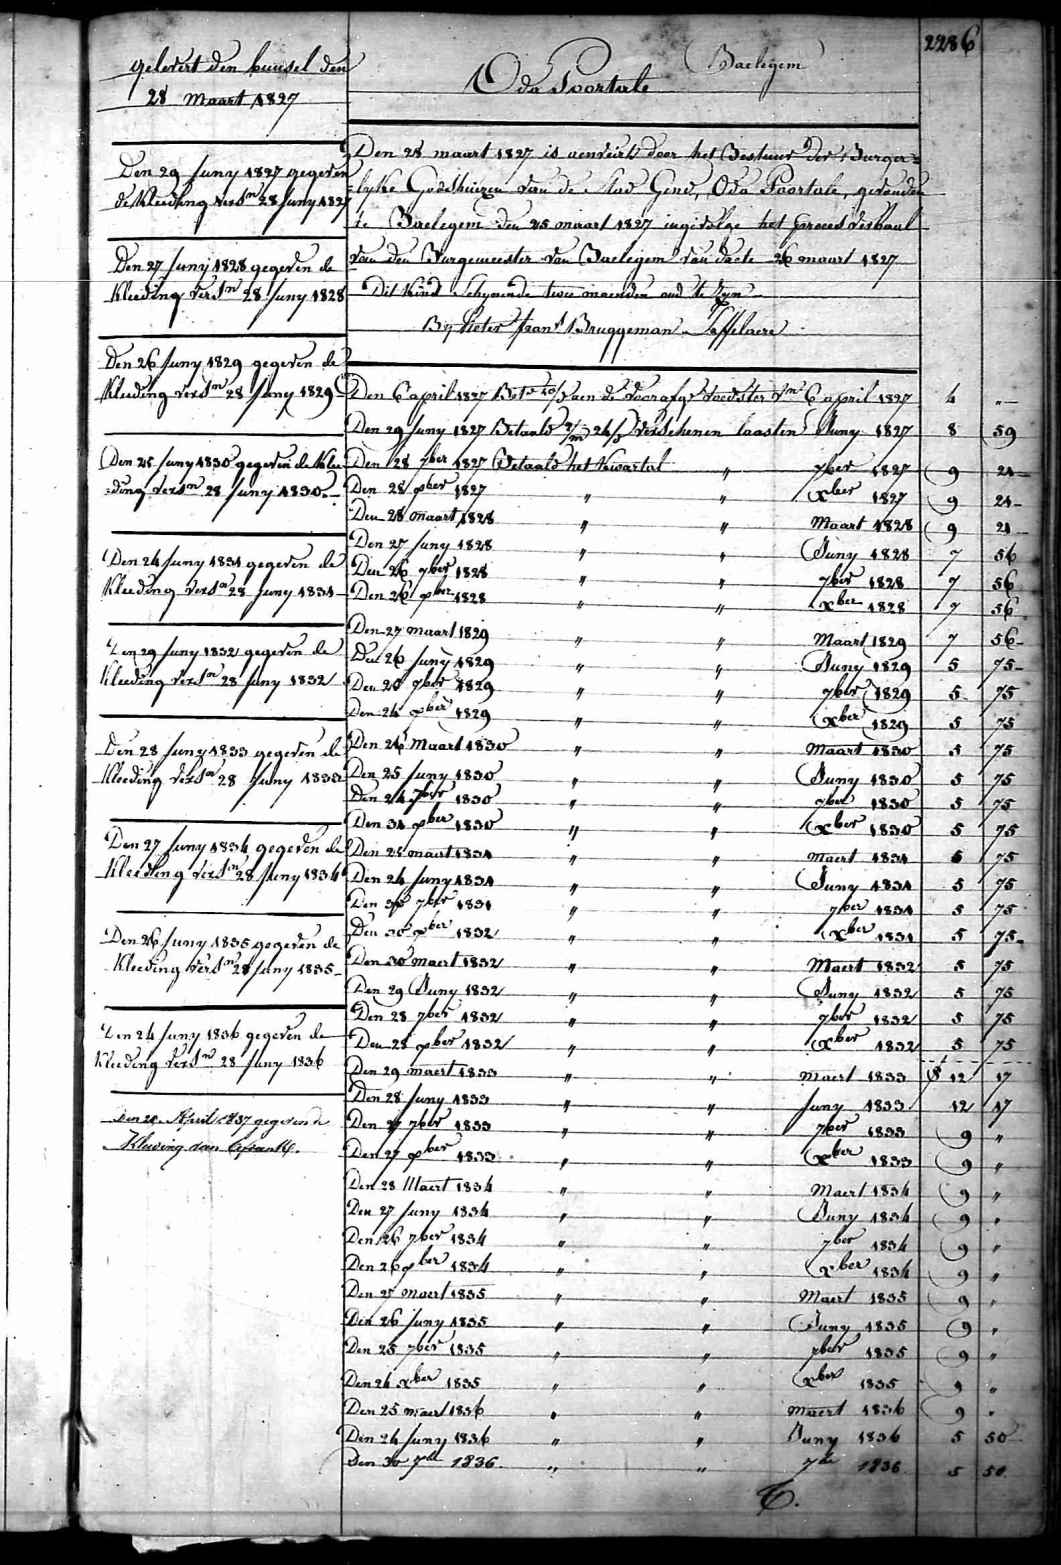 2286
gelevert den bunsel den
28 maart 1827
Den 29 Juny 1827 gegeven
de Kleeding versn 28 Juny 1827
Den 27 Juny 1828 gegeven de
Kleeding versn 28 Juny 1828
Den 26 Juny 1829 gegeven de
Kleeding versn 28 Juny 1829
Den 25 Juny 1830 gegeven de Klee
ding versn 28 Juny 1830
Den 24 Juny 1831 gegeven de
Kleeding versn 28 Juny 1831
Den 29 Juny 1832 gegeven de
Kleeding versn 28 Juny 1832
Den 28 Juny 1833 gegeven de
Kleeding versn 28 Juny 1833
Den 27 Juny 1834 gegeven de
Kleeding versn 28 Juny 1834
Den 26 Juny 1835 gegeven de
Kleeding versn 28 Juny 1835
Den 24 Juny 1836 gegeven de
Kleeding versn 28 Juny 1836
Den 20 April 1837 gegeven de
Kleeding van
Baelegem
Oda Poortale
Den 28 maart 1827 is aenveirt door het Bestuur der Burger=
=lyke Godshuizen van de Stad Gend, Oda Poortale, gevonden
te Baelegem den 25 maart 1827 ingevolge het proces verbaal
van den Burgemeester van Baelegem van dacte 26 maart 1827
Dit Kind schynende twee maenden oud te zyn
By Pieter frans Bruggeman Leffelaere
Den 6 april 1827 aen de voorafge voedster 6 april 1827 4 "
Den 29 Juny 1827 Betaald verschenen laasten Juny 1827 8 59
Den 28 7ber 1827 Betaald het Kwartal " 7ber 1827 9 24
Den 28 xber 1827 " " xber 1827 9 24
Den 28 maart 1828 " " Maart 1828 9 21
Den 27 Juny 1828 " " Juny 1828 7 56
Den 26 7ber 1828 " " 7ber 1828 7 56
Den 26 xber 1828 " " xber 1828 7 56
Den 27 maart 1829 " " Maart 1829 7 56
Den 26 Juny 1829 " " Juny 1829 5 75
Den 25 7ber 1829 " " 7ber 1829 5 75
Den 24 xber 1829 " " xber 1829 5 75
Den 26 Maart 1830 " " Maart 1830 5 75
Den 25 Juny 1830 " " Juny 1830 5 75
Den 24 7ber 1830 " " 7ber 1830 5 75
Den 31 xber 1830 " " xber 1830 5 75
Den 25 maart 1831 " " Maert 1831 5 75
Den 24 Juny 1831 " " Juny 1831 5 75
Den 30 7ber 1831 " " 7ber 1831 5 75
Den 30 xber 1832 " " xber 1831 5 75
Den 30 maert 1832 " " Maert 1832 5 75
Den 29 Juny 1832 " " Juny 1832 5 75
Den 28 7ber 1832 " " 7ber 1832 5 75
Den 28 xber 1832 " " xber 1832 5 75
Den 29 maert 1833 " " Maert 1833 12 17
Den 28 Juny 1833 " " Juny 1833 12 17
Den 27 7ber 1833 " " 7ber 1833 9 "
Den 27 xber 1833 " " xber 1833 9 "
Den 28 Maert 1834 " " Maert 1834 9 "
Den 27 Juny 1834 " " Juny 1834 9 "
Den 26 7ber 1834 " " 7ber 1834 9 "
Den 26 xber 1834 " " xber 1834 9 "
Den 27 maert 1835 " " Maert 1835 9 "
Den 26 Juny 1835 " " Juny 1835 9 "
Den 25 7ber 1835 " " 7ber 1835 9 "
Den 24 xber 1835 " " xber 1835 9 "
Den 25 maert 1836 " " maert 1836 9 "
Den 24 Juny 1836 " " Juny 1836 5 50
Den 30 7bre 1836 " " 7bre 1836 5 50